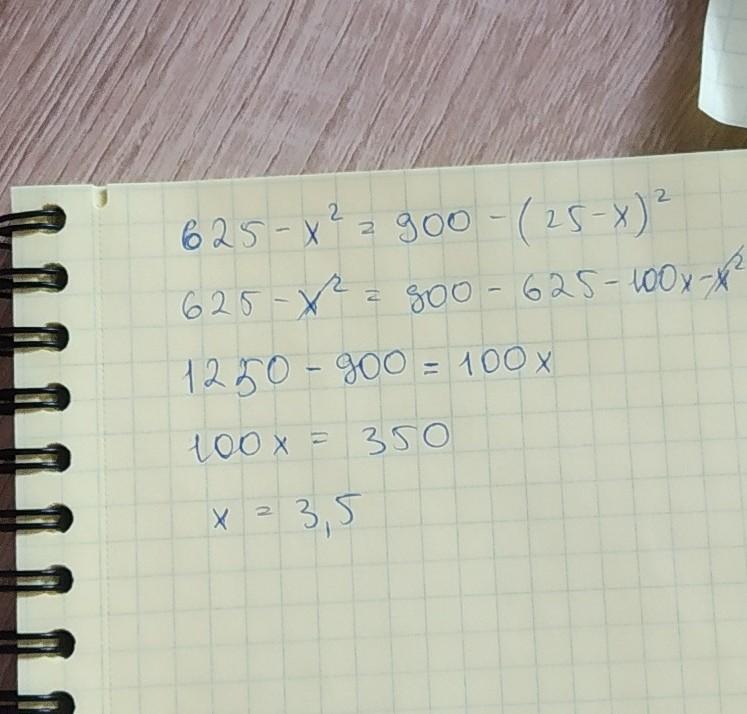 625 - x² = 900 - (25 - x)²
625 - x² = 900 - 625 - 100x - x²
1250 - 900 = 100x
100x = 350
x = 3,5